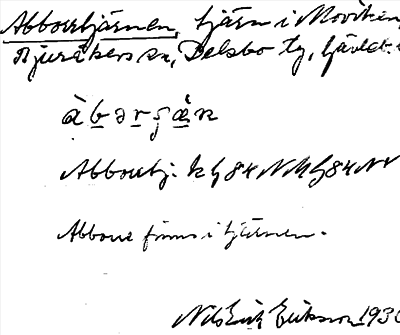 Abborrtjärnen, tjärn i Moviken,
Bjuråkers sn, Delsbo tg, Gävleb.
àbərʂä́n
Abborrtj.
Abborre finns i tjärnen.
Nils Erik Eriksson 1930